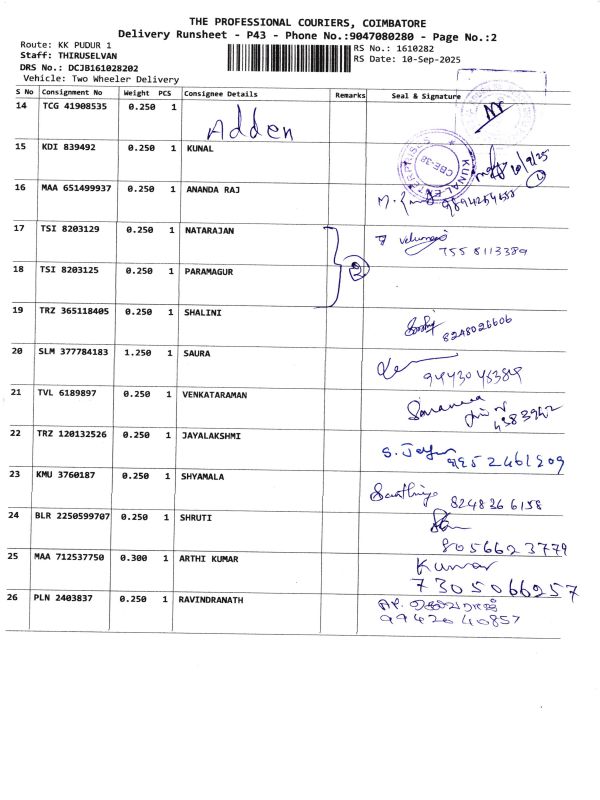 THE PROFESSIONAL COURIERS, COIMBATORE
Delivery Runsheet - P43 - Phone No.:9047080280 - Page No.:2
Route: KK PUDUR 1
RS No.: 1610282
Staff: THIRUSELVAN
RS Date: 10-Sep-2025
DRS No.: DCJB161028202
Vehicle: Two Wheeler Delivery
S No Consignment No Weight PCS Consignee Details Remarks Seal & Signature
14 TCG 41908535 0.250 1 Adden
15 KDI 839492 0.250 1 KUNAL
KUNAL ENTERPRISES
CBE-38
10/9/25
16 MAA 651499937 0.250 1 ANANDA RAJ
17 TSI 8203129 0.250 1 NATARAJAN
7558113389
18 TSI 8203125 0.250 1 PARAMAGUR
2
19 TRZ 365118405 0.250 1 SHALINI
8248026606
20 SLM 377784183 1.250 1 SAURA
21 TVL 6189897 0.250 1 VENKATARAMAN
22 TRZ 120132526 0.250 1 JAYALAKSHMI
9952461209
23 KMU 3760187 0.250 1 SHYAMALA
8248366158
24 BLR 2250599707 0.250 1 SHRUTI
8056623779
25 MAA 712537750 0.300 1 ARTHI KUMAR
Kumar
7305066257
26 PLN 2403837 0.250 1 RAVINDRANATH
9942640857